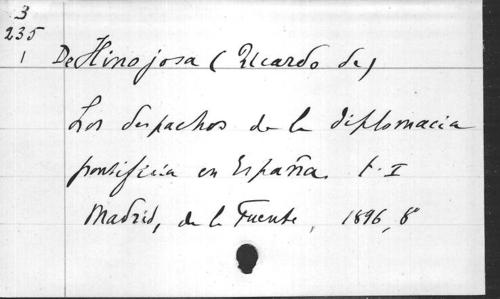 3
235
1
De Hinojosa (Ricardo de)
Los despachos de la diplomacia
pontificia en España. t. I
Madrid, de la Fuente, 1896, 8º